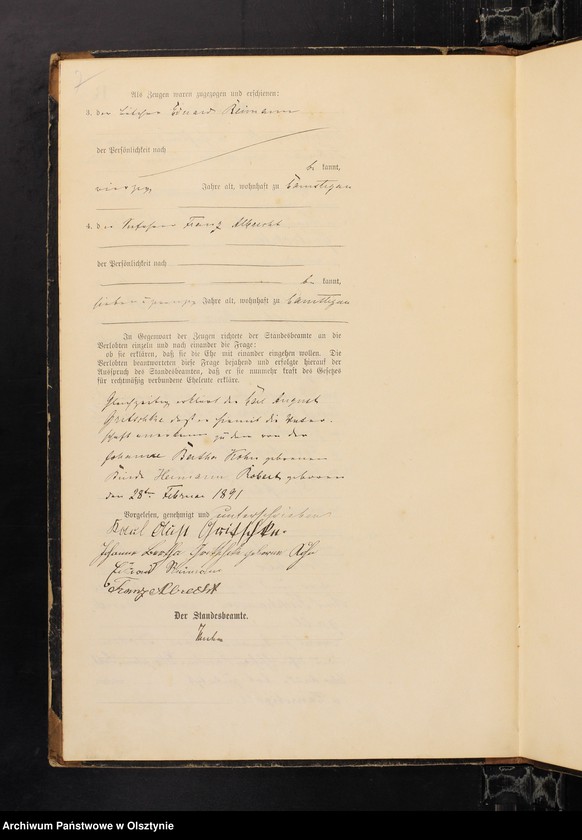 Als Zeugen waren zugezogen und erschienen:
3. der Eduard Reimann
der Persönlichkeit nach
be kannt,
vierzig Jahre alt, wohnhaft zu
4. der Franz Albrecht
der Persönlichkeit nach
be kannt,
Jahre alt, wohnhaft zu
In Gegenwart der Zeugen richtete der Standesbeamte an die
Verlobten einzeln und nach einander die Frage:
ob sie erklären, daß sie die Ehe mit einander eingehen wollen. Die
Verlobten beantworteten diese Frage bejahend und erfolgte hierauf der
Ausspruch des Standesbeamten, daß er sie nunmehr kraft des Gesetzes
für rechtmäßig verbundene Eheleute erkläre.
Gleichzeitig erklärt der Karl August
daß er hiermit die Vater-
schaft anerkenne zu dem von der
Johanne Bertha geborenen
Kinde Hermann Robert geboren
den 28ten Februar 1891
Vorgelesen, genehmigt und unterschrieben
Karl
Johanne Bertha geborene
Eduard Reimann
Franz Albrecht
Der Standesbeamte.
Archiwum Państwowe w Olsztynie